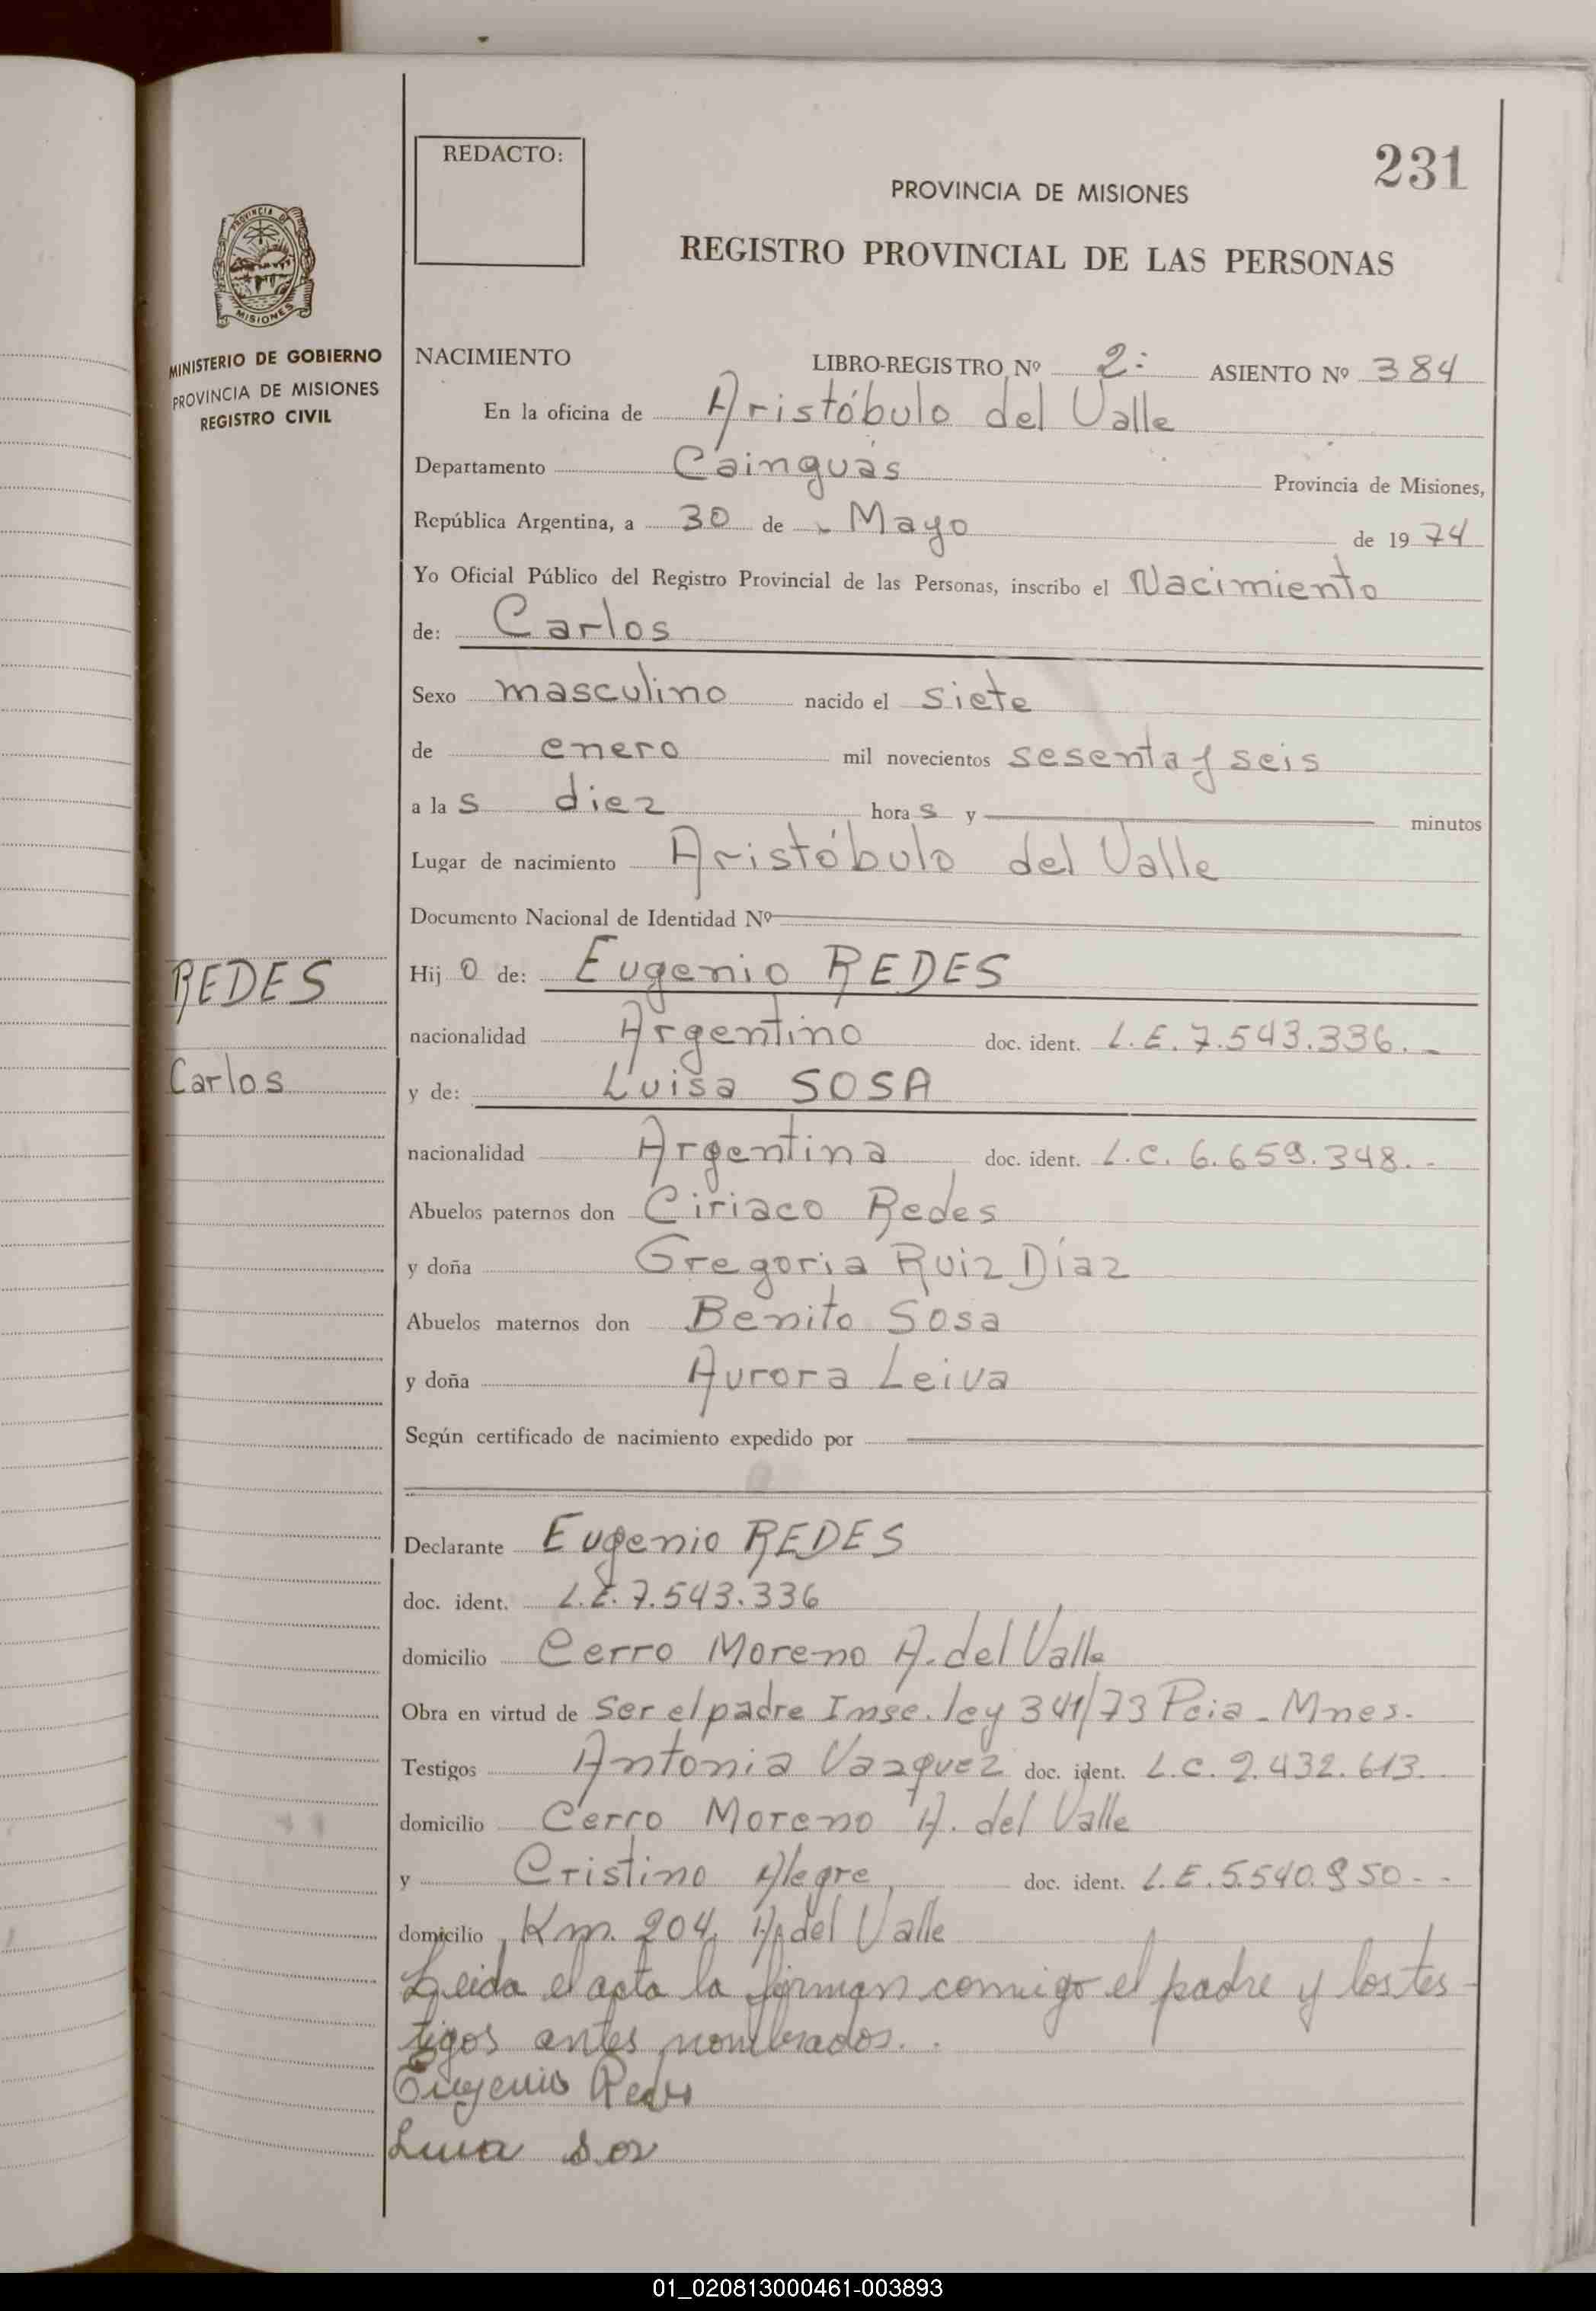 REDACTO:
231
PROVINCIA DE MISIONES
REGISTRO PROVINCIAL DE LAS PERSONAS
PROVINCIA DE
MISIONES
MINISTERIO DE GOBIERNO
PROVINCIA DE MISIONES
REGISTRO CIVIL
NACIMIENTO LIBRO-REGISTRO Nº 2: ASIENTO Nº 384
En la oficina de Aristóbulo del Valle
Departamento Cainguás Provincia de Misiones,
República Argentina, a 30 de Mayo de 1974
Yo Oficial Público del Registro Provincial de las Personas, inscribo el Nacimiento
de: Carlos
Sexo masculino nacido el siete
de enero mil novecientos sesenta y seis
a las diez horas y minutos
Lugar de nacimiento Aristóbulo del Valle
Documento Nacional de Identidad Nº
REDES
Carlos
Hijo de: Eugenio REDES
nacionalidad Argentino doc. ident. L.E. 7.543.336.-
y de: Luisa SOSA
nacionalidad Argentina doc. ident. L.C. 6.659.348.-
Abuelos paternos don Ciriaco Redes
y doña Gregoria Ruiz Díaz
Abuelos maternos don Benito Sosa
y doña Aurora Leiva
Según certificado de nacimiento expedido por
Declarante Eugenio REDES
doc. ident. L.E. 7.543.336
domicilio Cerro Moreno A. del Valle
Obra en virtud de ser el padre Insc. ley 341/73 Pcia. Mnes.
Testigos Antonia Vazquez doc. ident. L.C. 2.432.613.
domicilio Cerro Moreno A. del Valle
y Cristino Alegre, doc. ident. L.E. 5.540.950.--
domicilio, Km. 204, A. del Valle
Leida el acta la firman conmigo el padre y los tes-
tigos antes nombrados..
Eugenio Redes
01_020813000461-003893